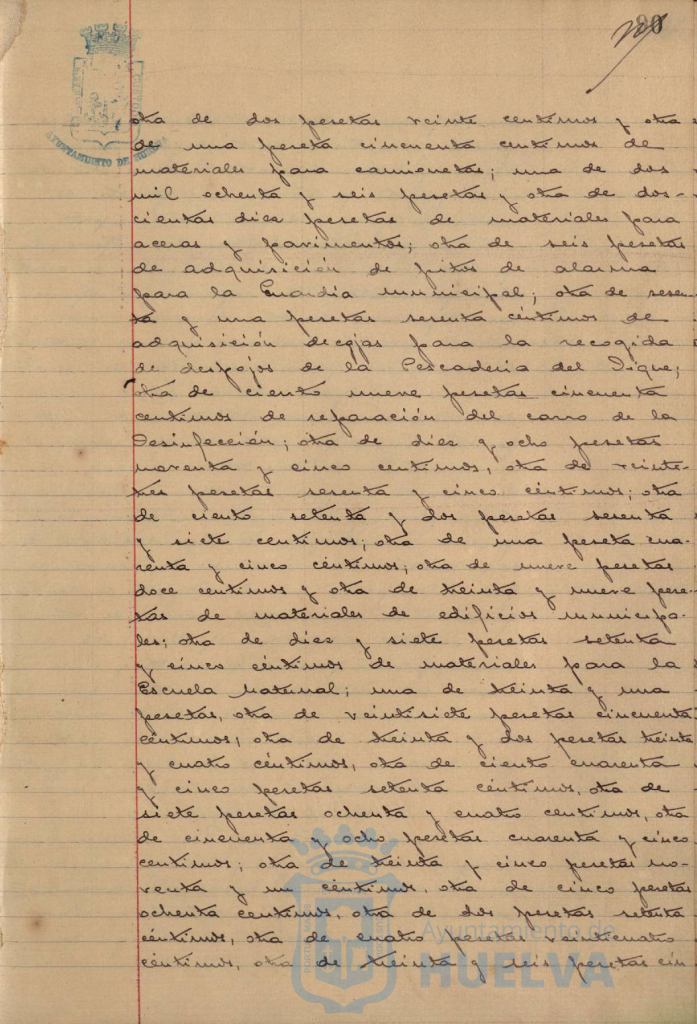 90
otra de dos pesetas veinte centimos y otra
de una peseta cincuenta centimos de
materiales para camionetas; una de dos
mil ochenta y seis pesetas y otra de dos-
cientas diez pesetas de materiales para
aceras y pavimentos; otra de seis pesetas
de adquisición de pitos de alarma
para la Guardia municipal; otra de sesen-
ta y una pesetas sesenta céntimos de
adquisición de cajas para la recogida
de despojos de la Pescaderia del Dique;
otra de ciento nueve pesetas cincuenta
centimos de reparación del carro de la
Desinfección; otra de diez y ocho pesetas
noventa y cinco centimos, otra de veinte-
tres pesetas sesenta y cinco céntimos; otra
de ciento setenta y dos pesetas sesenta
y siete centimos; otra de una peseta cua-
renta y cinco céntimos; otra de nueve pesetas
doce centimos y otra de treinta y nueve pese-
tas de materiales de edificios municipa-
les; otra de diez y siete pesetas setenta
y cinco céntimos de materiales para la
Escuela Maternal; una de treinta y una
pesetas, otra de veintisiete pesetas cincuenta
céntimos, otra de treinta y dos pesetas treinta
y cuatro céntimos, otra de ciento cuarenta
y cinco pesetas setenta céntimos, otra de
siete pesetas ochenta y cuatro centimos, otra
de cincuenta y ocho pesetas cuarenta y cinco
centimos; otra de treinta y cinco pesetas no-
venta y un céntimos, otra de cinco pesetas
ochenta centimos, otra de dos pesetas setenta
céntimos, otra de cuatro pesetas veinticuatro
céntimos, otra de treinta y seis pesetas cin
AYUNTAMIENTO DE HUELVA
Ayuntamiento de
HUELVA